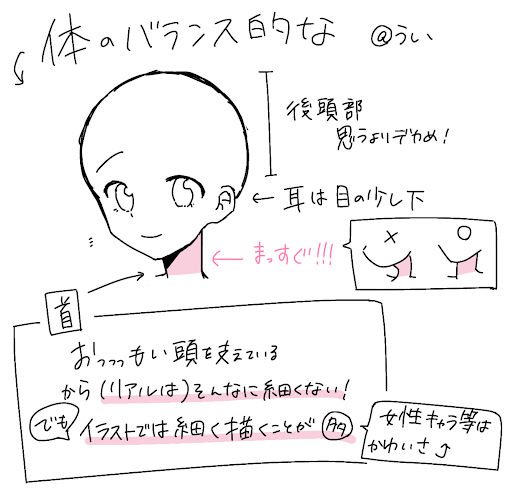 体のバランス的な @うい
後頭部
思うよりデカめ!
耳は目の少し下
まっすぐ!!!
× ○
首
おっっっもい頭を支えている
から(リアルは)そんなに細くない!
でも
イラストでは細く描くことが
女性キャラ等は
かわいさ↑